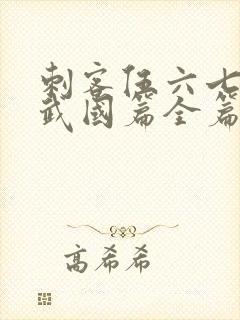 刺客伍六七
武國篇全篇
高希希